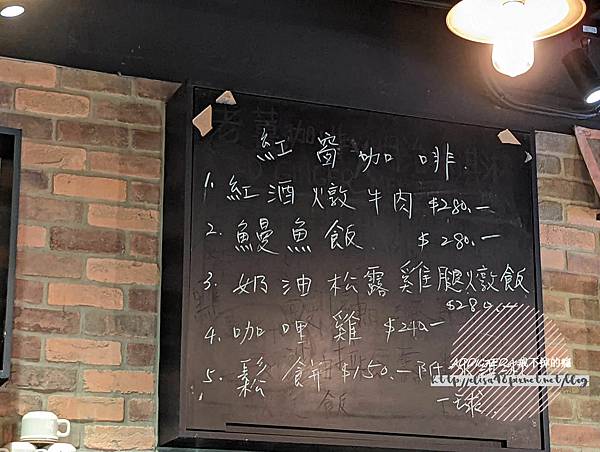 紅窩咖啡.
1. 紅酒燉牛肉 $280.—
2. 鰻魚飯 $280.—
3. 奶油松露雞腿燉飯
$280.—
4. 咖哩雞 $240.—
5. 鬆餅 $150.— 附冰淇淋
一球.
http://elisa40.pixnet.net/blog